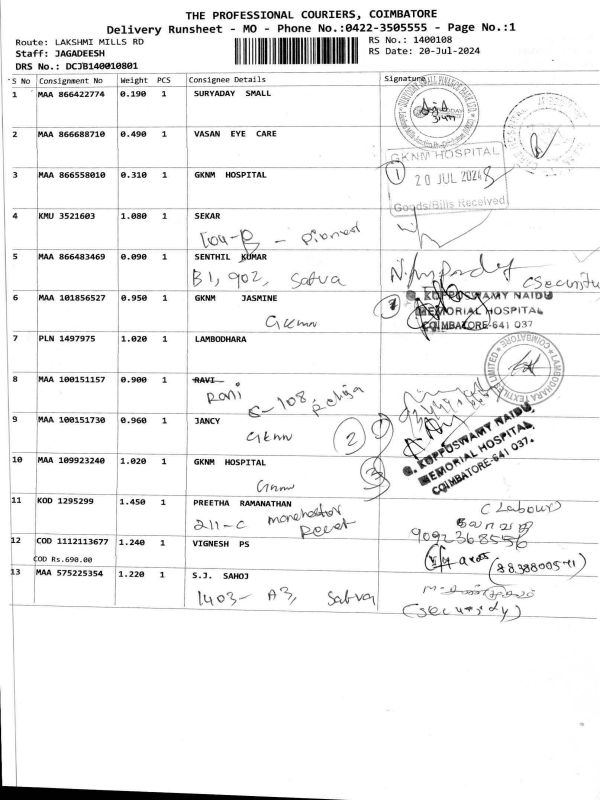 THE PROFESSIONAL COURIERS, COIMBATORE
Delivery Runsheet - MO - Phone No.:0422-3505555 - Page No.:1
Route: LAKSHMI MILLS RD
RS No.: 1400108
Staff: JAGADEESH
RS Date: 20-Jul-2024
DRS No.: DCJB140010801
S No Consignment No Weight PCS Consignee Details Signature
1 MAA 866422774 0.190 1 SURYADAY SMALL
2 MAA 866688710 0.490 1 VASAN EYE CARE
GKNM HOSPITAL
3 MAA 866558010 0.310 1 GKNM HOSPITAL
1 20 JUL 2024
Goods/Bills Received
4 KMU 3521603 1.080 1 SEKAR
5 MAA 866483469 0.090 1 SENTHIL KUMAR
B1, 902, Satva
(Security
6 MAA 101856527 0.950 1 GKNM JASMINE
Gknm
G. KUPPUSWAMY NAIDU
MEMORIAL HOSPITAL
COIMBATORE-641 037
7 PLN 1497975 1.020 1 LAMBODHARA
LAMBODHARA TEXTILES LIMITED COIMBATORE
8 MAA 100151157 0.900 1 RAVI
Rani
C-108,
9 MAA 100151730 0.960 1 JANCY
Gknm
2
G. KUPPUSWAMY NAIDU
MEMORIAL HOSPITAL
COIMBATORE-641 037.
10 MAA 109923240 1.020 1 GKNM HOSPITAL
Gknm
3
11 KOD 1295299 1.450 1 PREETHA RAMANATHAN
211-C
(Labour)
9092368556
12 COD 1112113677 1.240 1 VIGNESH PS
COD Rs.690.00
13 MAA 575225354 1.220 1 S.J. SAHOJ
1403- A3, Satva
(Security)